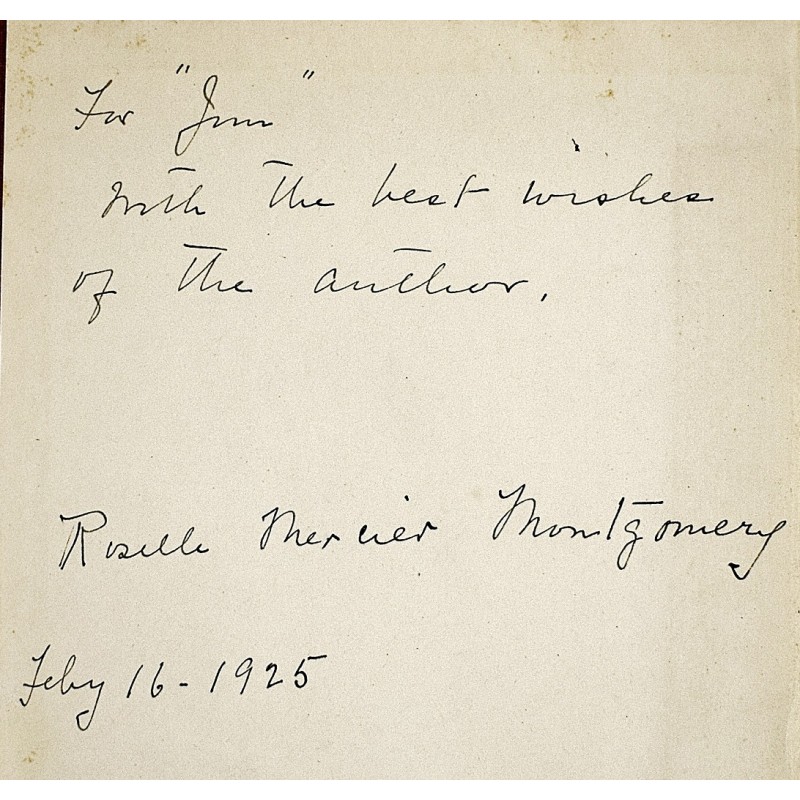 For "Jim"
with the best wishes
of the author.
Roselle Mercier Montgomery
Feby 16 - 1925